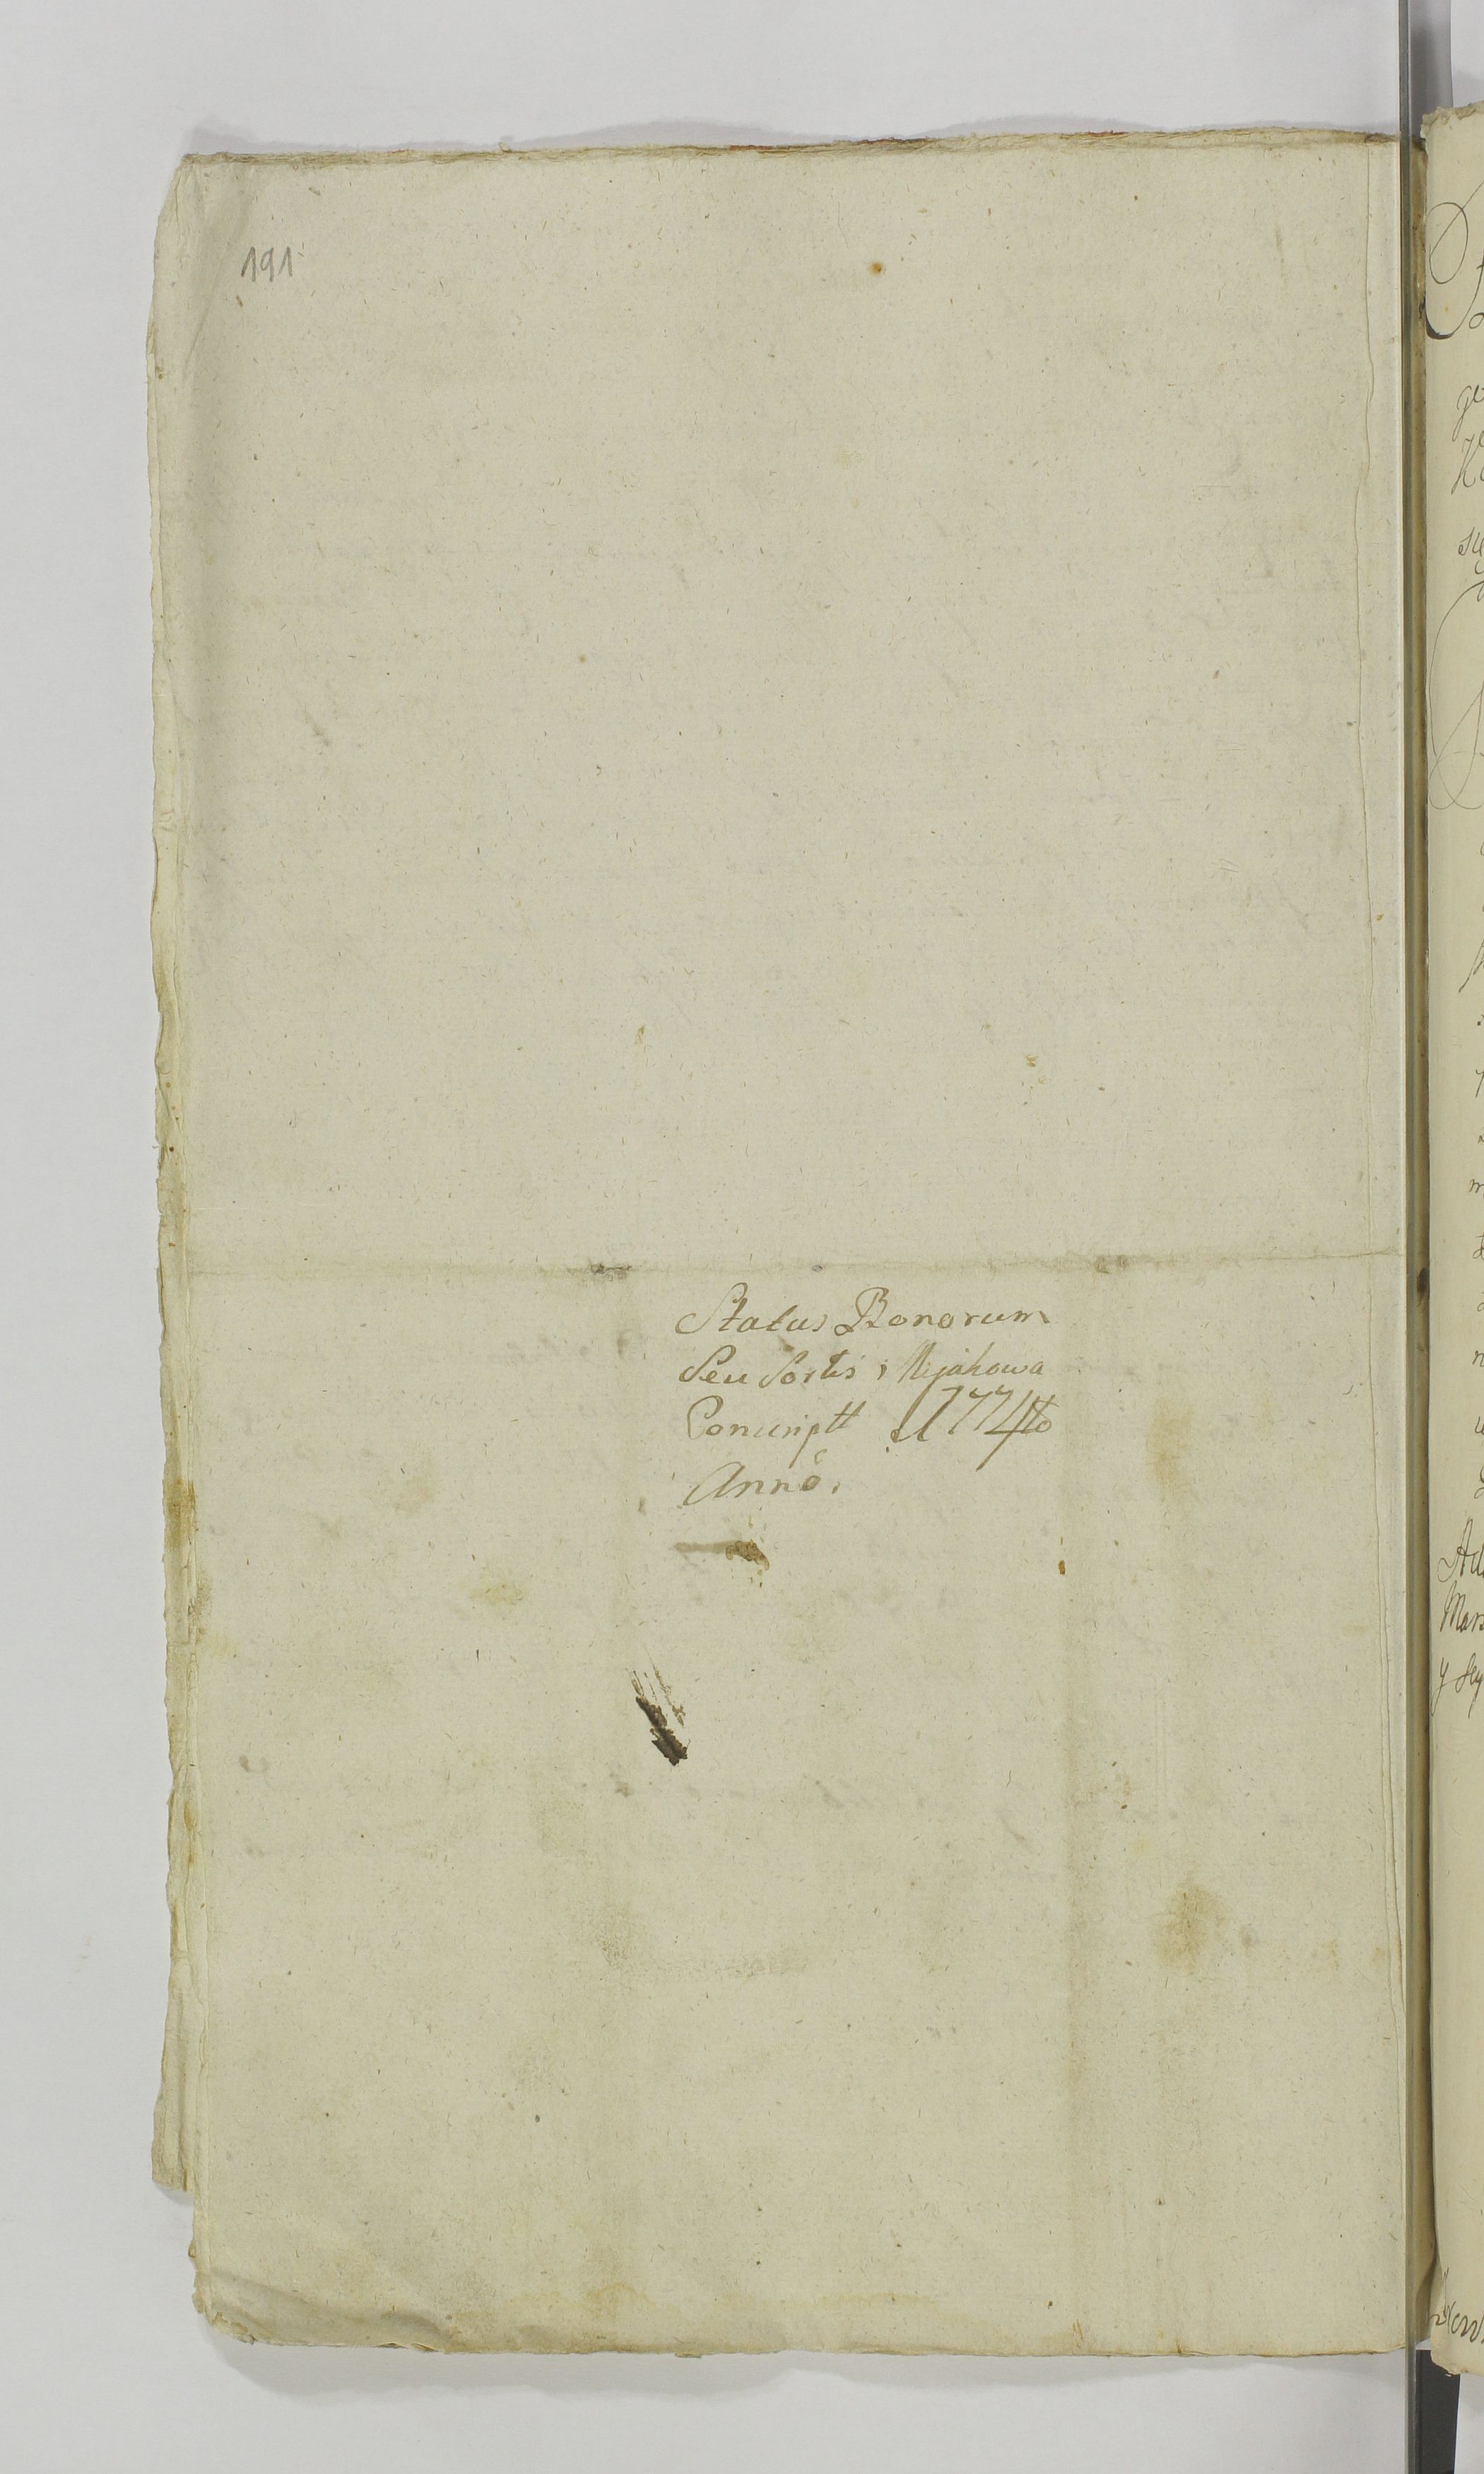 191
Status Bonorum
Seu Sortis
Conscriptt 1774to
Annô.